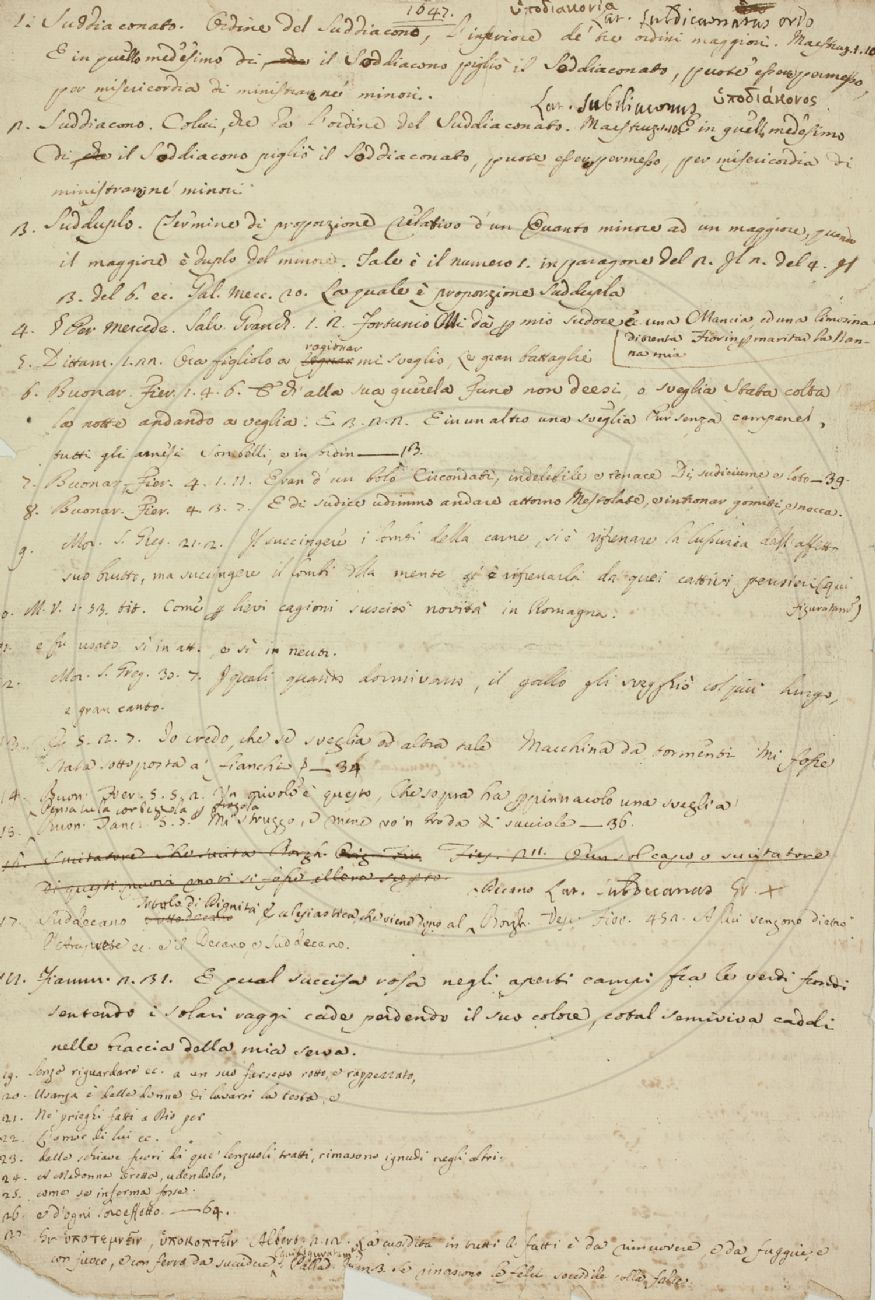 1647. ὑποδιακονία
1. Suddiaconato. Ordine del Suddiacono, l'inferiore de' tre ordini maggiori. Maestruz. 1. 10
E in quello medesimo dì, il Soddiacono pigliò il Soddiaconato, puote esser permesso,
per misericordia di ministrar ne' minori.
Lat. subdiaconus ὑποδιάκονος
2. Suddiacono. Colui, che ha l'ordine del Suddiaconato. E in quello medesimo
Dì il Soddiacono pigliò il Soddiaconato, puote esser permesso, per misericordia di
ministrar ne' minori
3. Sudduplo. Termine di proporzione relativo d'un Quanto minore ad un maggiore, quando
il maggiore è duplo del minore. Tale è il numero 1. in paragone del 2. Il 2. del 4. Il
3. del 6. ec. Gal. Mecc. 20. La quale è proporzione Suddupla
4. Per Mercede. Salv. Granch. 1. 2. Fortunio Mi dà p mio sudore è una Mancia, ed una limosina
Di trenta Fiorin p maritar la Nan-
na mia
5. Dittam. 1. 22. Ora figliolo a mi sveglio, Le gran battaglie
6. Buonar. Fier. 1. 4. 6. E d' alla sua querela Fune non deesi, o sveglia Stata colta
la notte andando a veglia: E 3. 2. 2. E in un altro una sveglia Pur senza campanel,
tutti gli arnesi Son belli, e in ordin — 13.
7. Buonar. Fier. 4. 1. 11. Eran d'un bolo Circondati, indelebile e tenace Di sudiciume e loto — 39.
8. Buonar. Fier. 4. 3. 7. E di sudice udimmo andare attorno Mescolate, e intronar gomiti, e nocca.
9. Mor. S. Greg. 21. 2. Il succingere i lombi della carne, si è rifrenare la lussuria dell'affetto
suo brutto, ma succingere i lombi della mente si è rifrenarla da quei cattivi pensieri (qui
figuratam.)
M. V. 1. 53. tit. Come p lievi cagioni suscitò novità in Romagna.
e fu usato sì in att. e sì in neutr.
Mor. S. Greg. 30. 7. I quali quando dormivano, il gallo gli svegliò col più lungo,
e gran canto.
5. 2. 7. Io credo, che se sveglia od altra tale Macchina da tormenti Mi fosse
Stata sotto posta a' fianchi — 34
14. Buon. Fier. 5. 5. 2. Un rivolo è questo, Che sopra ha p pinnacolo una sveglia
15. Buon. Tanc. 5. 5. Mi struggo, e mene vo'n broda di succiole — 36.
16. Suscitatore Che suscita Borgh. Fies. 211. O un sol capo, o suscitatore
Di questi nuovi mori si fosse
Decano Lat. subdecanus Gr. +
17. Suddecano Titolo di Dignità Ecclesiastica, che viene dopo al Borgh. Vesc. Fior. 452. A lui vengono dietro
ec. e'l Decano, e Suddecano.
18. Fiamm. 2. 31. E qual succisa rosa negli aperti campi fra le verdi frondi
sentendo i solari raggi cade perdendo il suo colore, cotal semiviva caddi
nelle braccia della mia serva.
19. Senza riguardare ec. a un suo farsetto rotto, e rappezzato,
20. Usanza è delle donne di lavarsi la testa, e
21. Nè prieghi fatti a Dio per
22. L'amor di lui ec.
23. delle schiave fuori di que' lenzuoli tratti, rimasono ignudi negli altri
24. A Madonna Beretta, udendolo,
25. come se inferma fosse
26. e d'ogni loro effetto. — 64.
27. Gr. ὑποτέμνειν, ὑποκόπτειν Albert. 2. 12. La cupidità in tutti li fatti è da rimuovere, e da fuggire, e
con fuoco, e con ferro da succidere. Pallad. se rinascono le felci succidile colla falce.